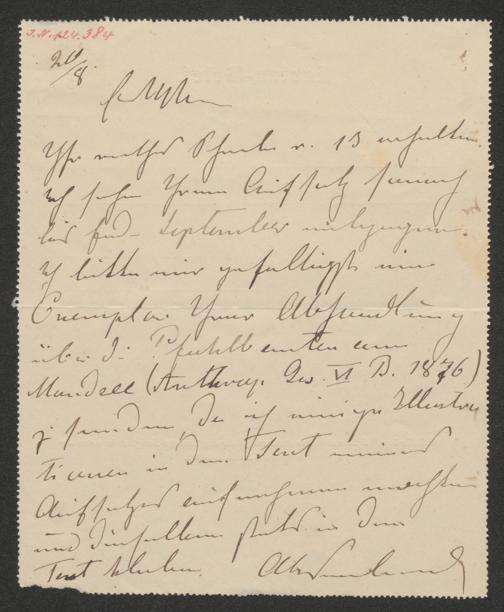 I.N. 124.384
20/8.
Ihr werthes Schreiben v. 13 erhalten.
Ich sehe Ihrem Aufsatz
bis Ende September entgegen.
Ich bitte mir gefälligst ein
Exemplar Ihrer Abhandlung
über die Pfahlbauten am
Mondsee (Anthrop. Ges. VI B. 1876)
zu senden, da ich einige Illustra
tionen in den Text meines
Aufsatzes aufnehmen möchte
und dieselben in den
Text